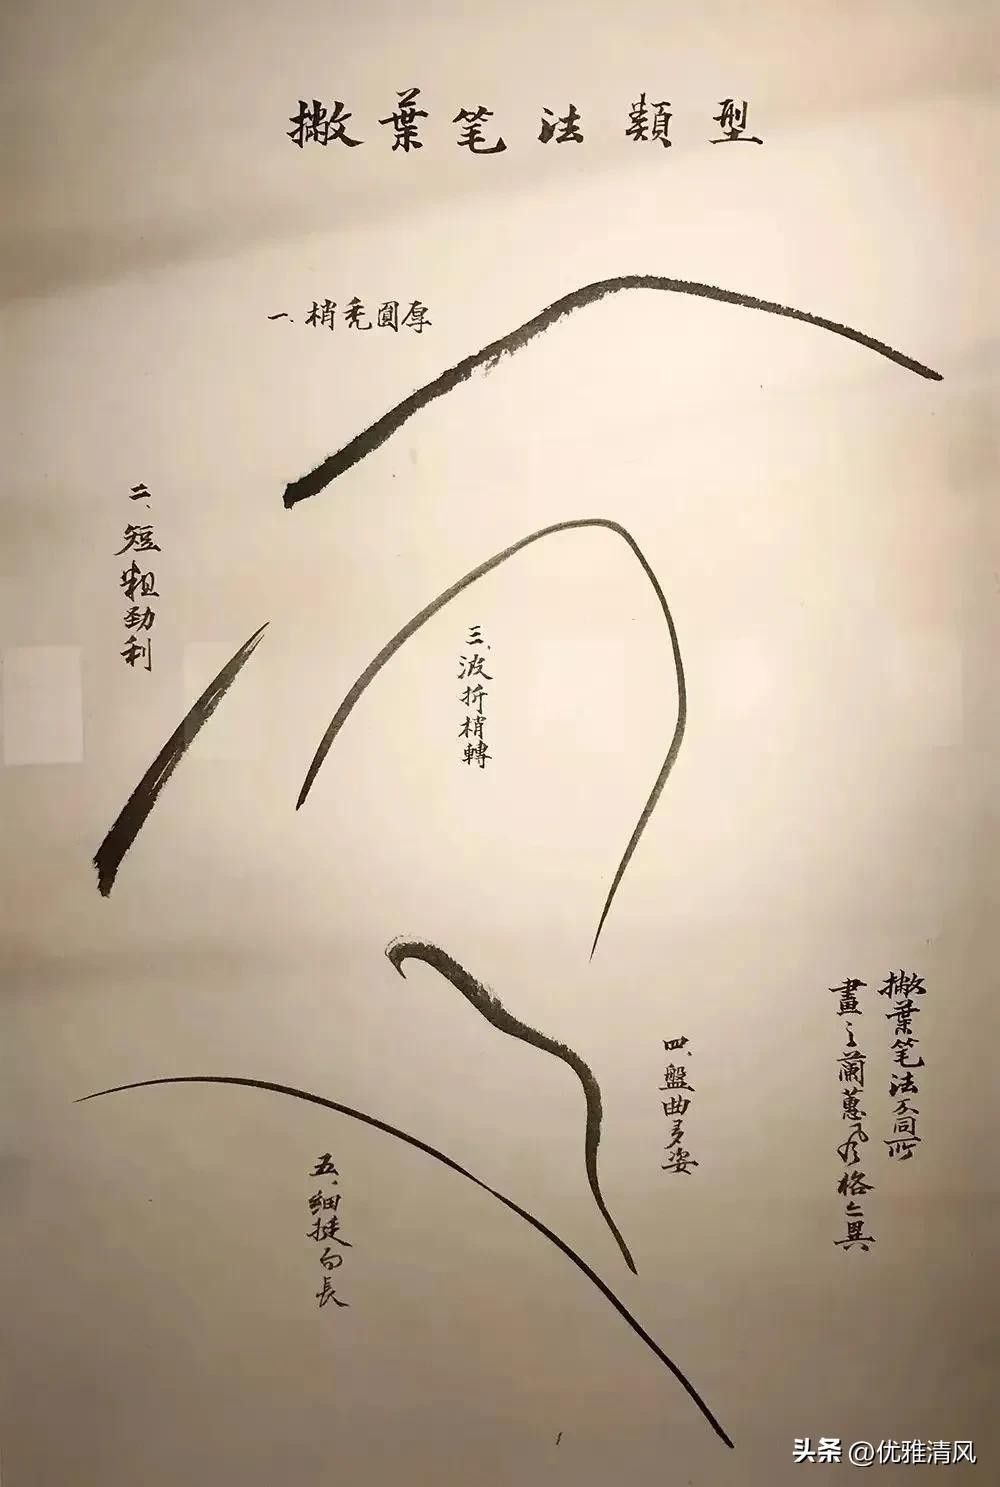 撇葉笔法類型
一、梢秃圓厚
二、短粗劲利
三、波折梢轉
四、盤曲多姿
五、细挺而長
撇葉笔法不同所
畫之蘭蕙风格亦異
头条 @优雅清风